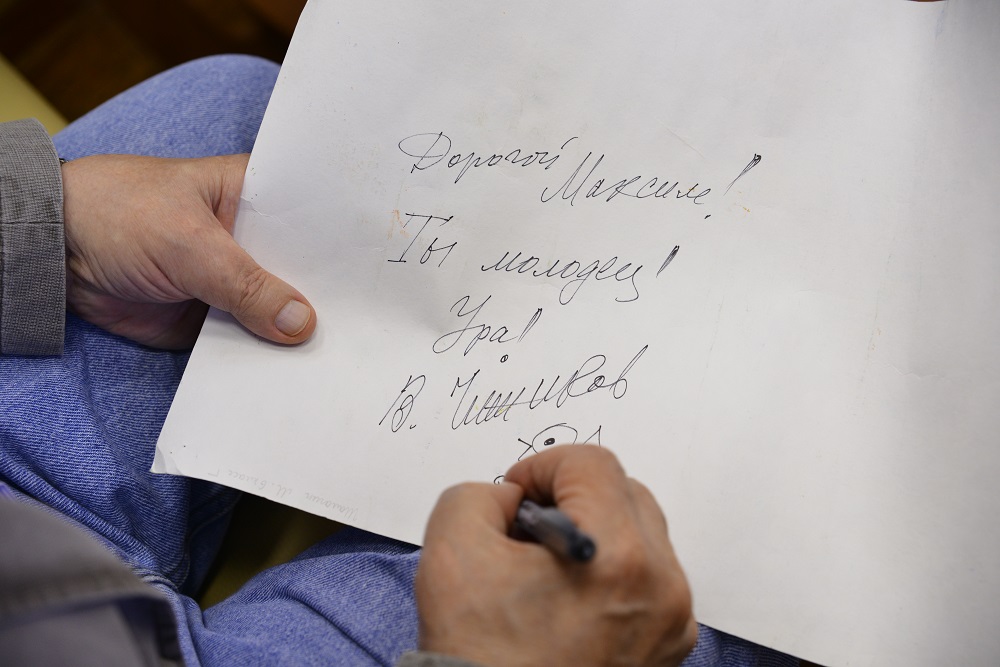 Дорогой
Максим!
Ты молодец!
Ура!
В. Чижиков